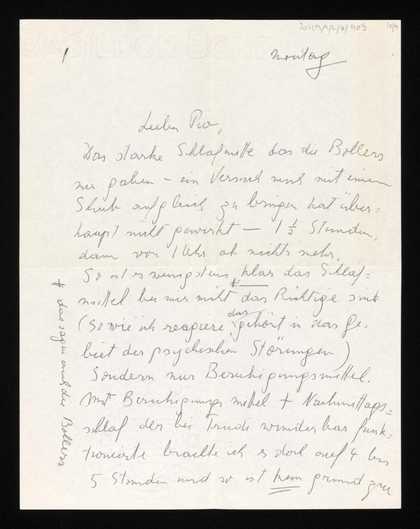 1
Montag
Lieber Pio,
Das starke Schlafmittel das die Bollers
mir gaben – ein Versuch mich mit einem
Schub aufgleich zu bringen hat über-
haupt nicht gewirkt – 1½ Stunden,
dann vor 1 Uhr ab nichts mehr.
So ist es wenigstens klar das Schlaf-
mittel bei mir nicht das Richtige sind
(so wie ich reagiere das gehört in das Ge-
biet der psychischen Störungen)
Sondern nur Beruhigungsmittel.
Mit Beruhigungsmittel + Nachmittags-
schlaf der bei Trude wunderbar funk-
tionierte brachte ich es doch auf 4 bis
5 Stunden und so ist kein Grund zur
+ das sagen auch die Bollers